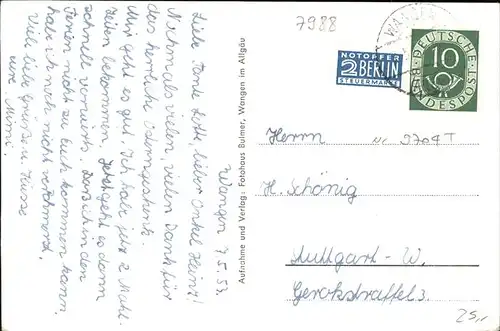 7988
Wangen 7.5.53.
Liebe Tante Lotte, lieber Onkel Heinz!
Nochmals vielen, vielen Dank für
das herrliche Ostergeschenk.
Mir geht es gut. Ich habe jetzt 2 Mahl-
zeiten bekommen. Jetzt geht es dann
schnell vorwärts. Daß ich in den
Ferien nicht zu Euch kommen kann,
habe ich noch nicht verschmerzt.
Viele liebe Grüße u. Küsse
eure Mimi.
Aufnahme und Verlag: Fotohaus Bulmer, Wangen im Allgäu
NOTOPFER
2 BERLIN
STEUERMARKE
WANGEN
DEUTSCHE
10
BUNDESPOST
Herrn
Nr 9704 T
H. Schönig
Stuttgart - W.
Gerokstraffel 3.
25,-